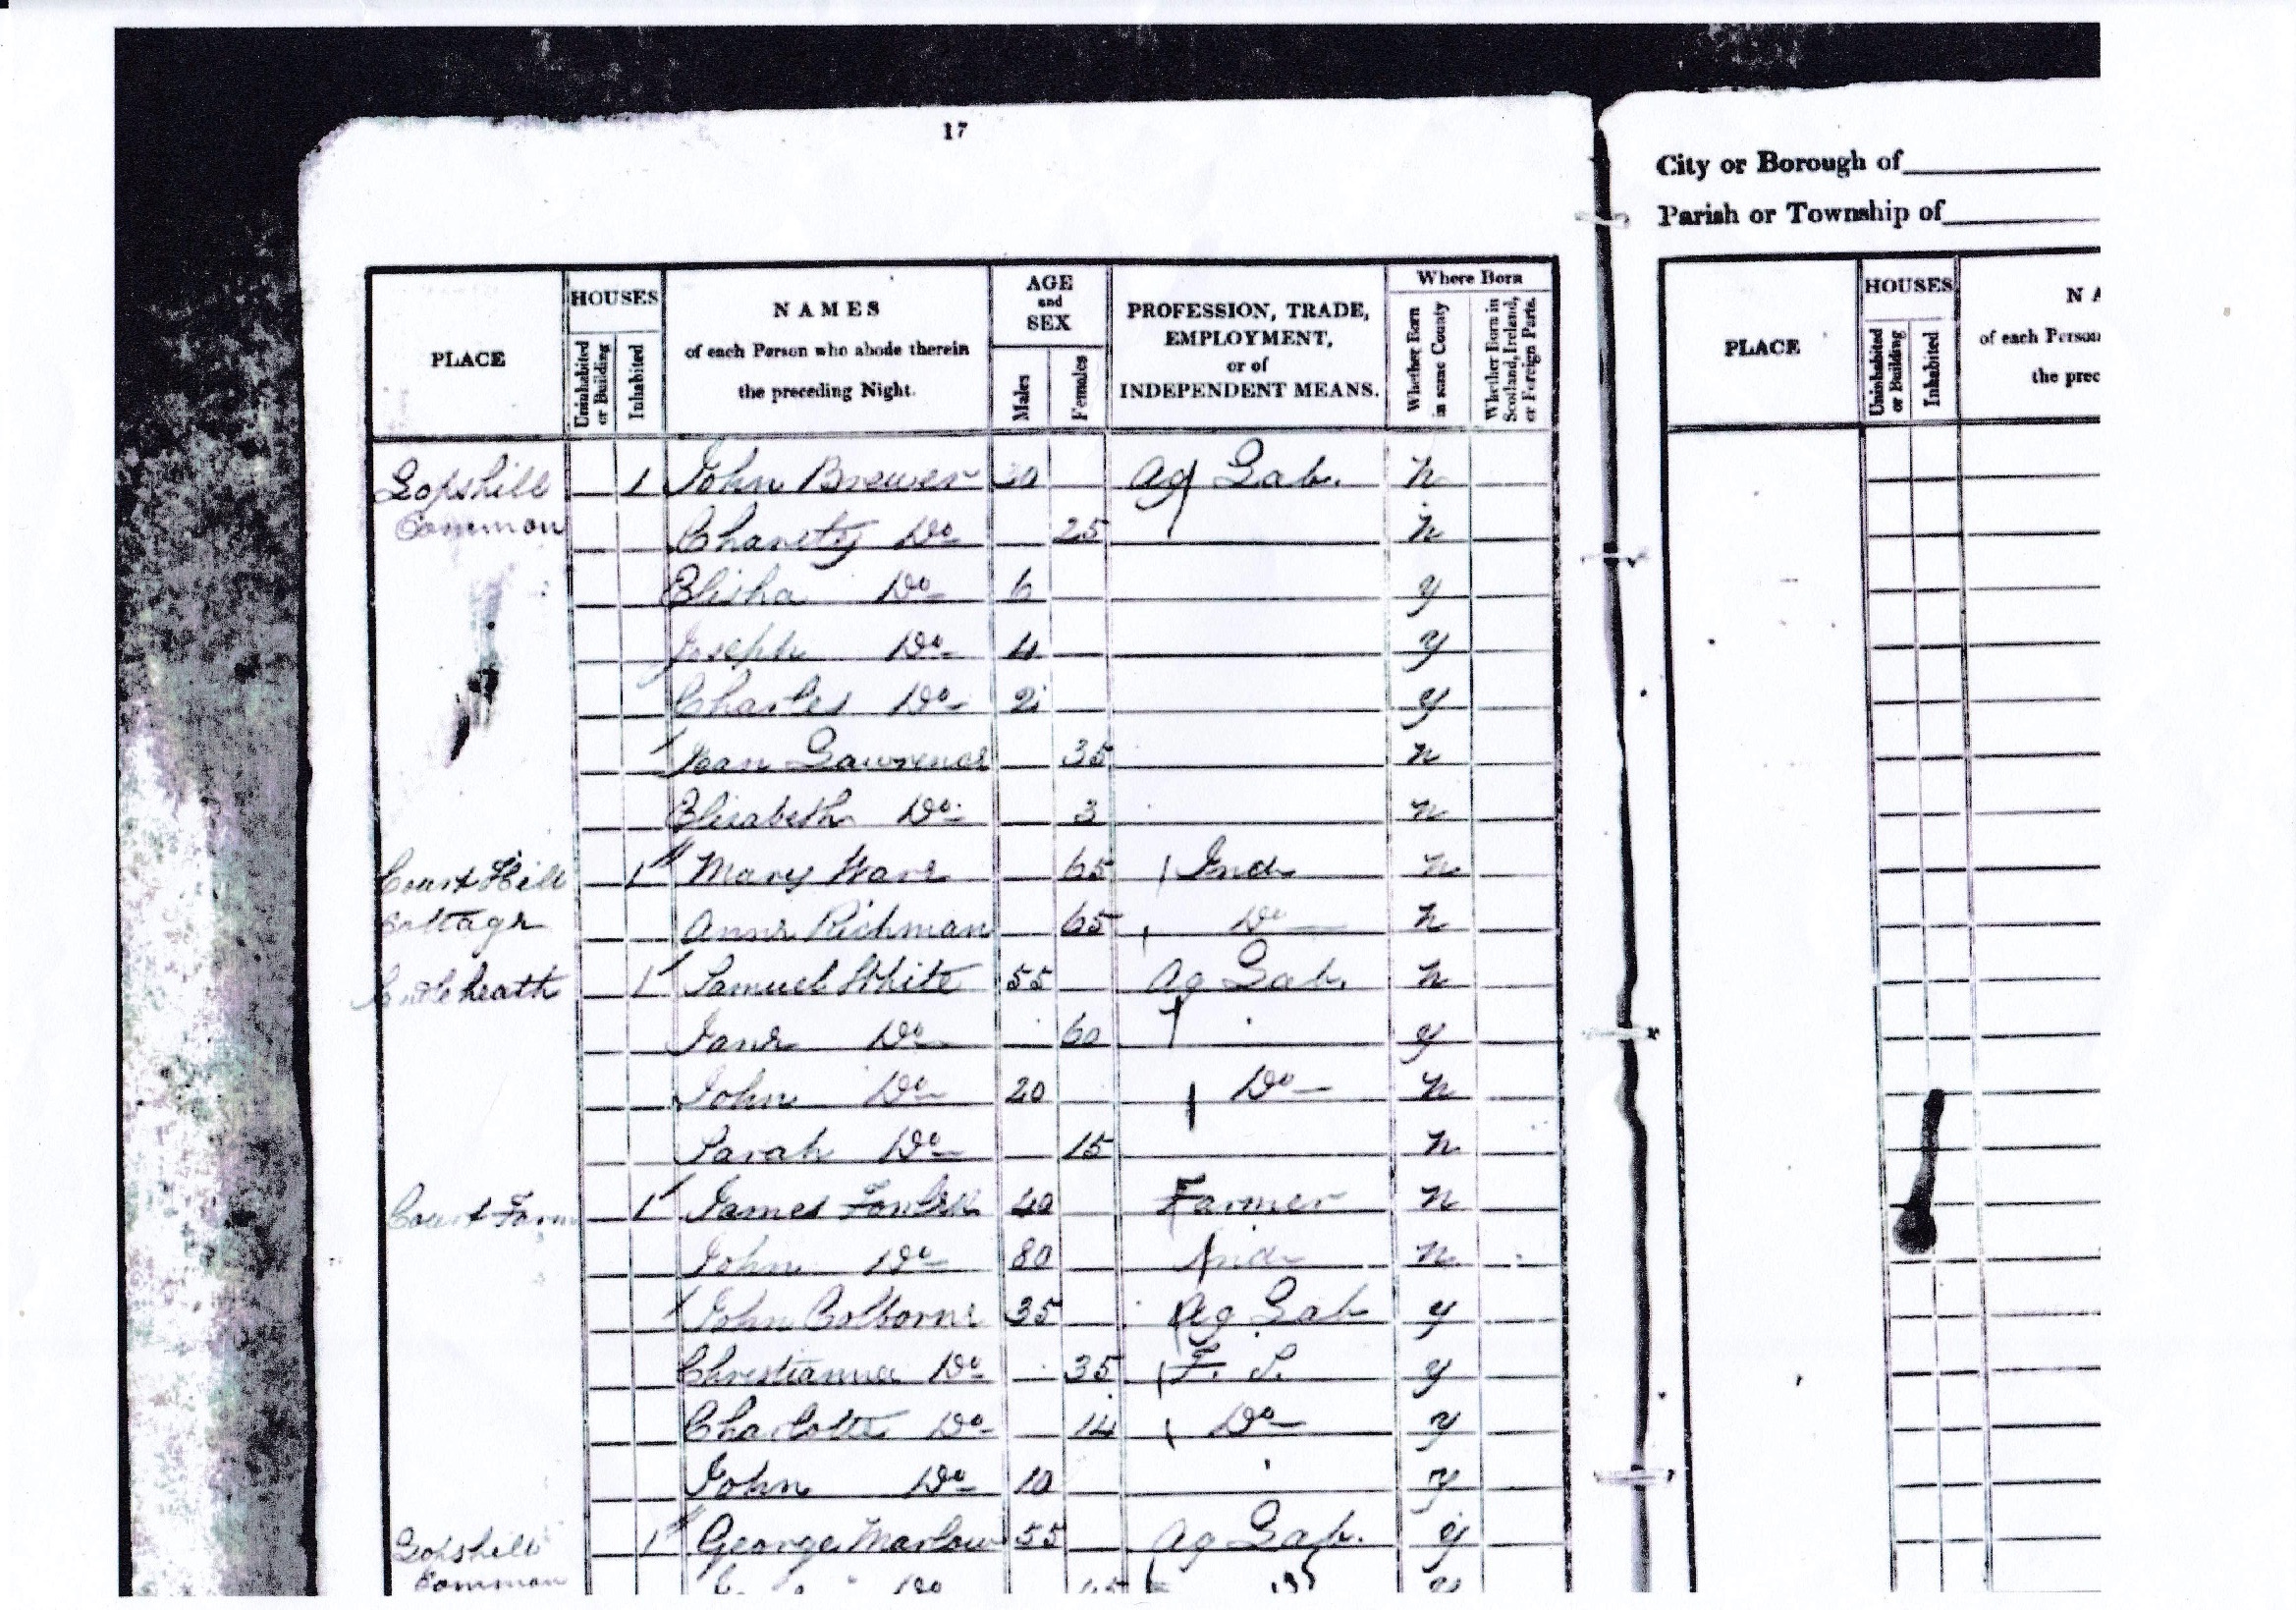 17
City or Borough of
Parish or Township of
PLACE HOUSES Uninhabited or Building Inhabited NAMES of each Person who abode therein the preceding Night. AGE and SEX Males Females PROFESSION, TRADE, EMPLOYMENT, or of INDEPENDENT MEANS. Where Born Whether Born in same County Whether Born in Scotland, Ireland, or Foreign Parts.
PLACE HOUSES Uninhabited or Building Inhabited NA of each Person the prec
Gopshill 1 John Brewer Ag Lab. n
Common Charity Do 25 n
Elisha Do 6 y
Joseph Do 4 y
Charles Do 2 y
Lawrence 35 n
Elisabeth Do 3 n
Court Hill 1 Mary Ware 65 Ind n
Cottage Anne Richman 65 Do n
1 Samuel White 55 Ag Lab. n
Jane Do 60 y
John Do 20 Do n
Sarah Do 15 n
Court Farm 1 James 40 Farmer n
John Do 80 Ind n
John Colborne 35 Ag Lab y
Christianna Do 35 F. S. y
Charlotte Do 14 Do y
John Do 10 y
Gopshill 1 George Marlow 55 Ag Lab. y
Common Do y